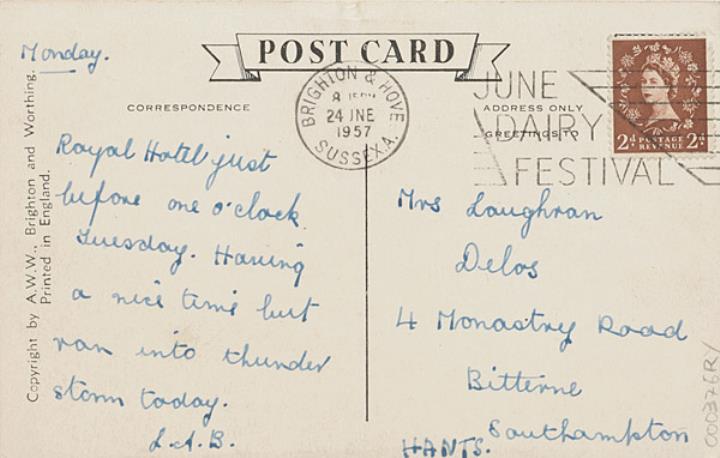 POST CARD
Monday.
CORRESPONDENCE
ADDRESS ONLY
GREETINGS TO
BRIGHTON & HOVE
24 JNE
1957
SUSSEX.A.
JUNE
DAIRY
FESTIVAL
2d POSTAGE REVENUE 2d
Royal Hotel just
before one o'clock
Tuesday. Having
a nice time but
ran into thunder
storm today.
L.A.B.
Mrs Loughran
Delos
4 Monastry Road
Bitterne
Southampton
HANTS.
Copyright by A.W.W., Brighton and Worthing.
Printed in England.
000376RY